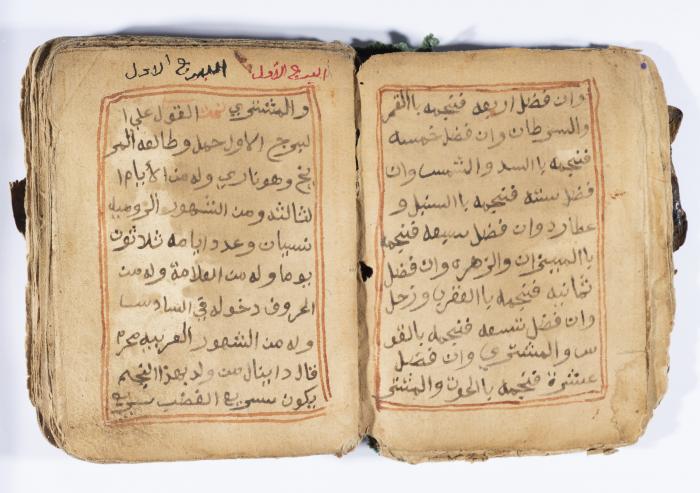 وان فضل اربعه فنجمه باالقمر
والسرطان وان فضل خمسه
فنجمه باالسد والشمس وان
فضل سته فنجمه باالسنبل و
عطارد وان فضل سبعه فنجمه
باالميزان والزهره وان فضل
ثمانيه فنجمه باالعقرب وزحل
وان فضل تسعه فنجمه بالقو
س والمشتري وان فضل
عشرة فنجمه باالحوت والمشتي
البرج الأول الاول
والمشتري تمت القول على ا
لبرج الاول حمل وطالعه المر
يخ وهو ناري وله من الأيام ا
لثالثه ومن الشهور الروميه
نسيان وعدد ايامه ثلاثون
يوما وله من العلامة وله من
الحروف دخوله في السادسا
وله من الشهور العربيه محرم
قال دانيال من ولد بهذا النجم
يكون سريع الغضب سريع